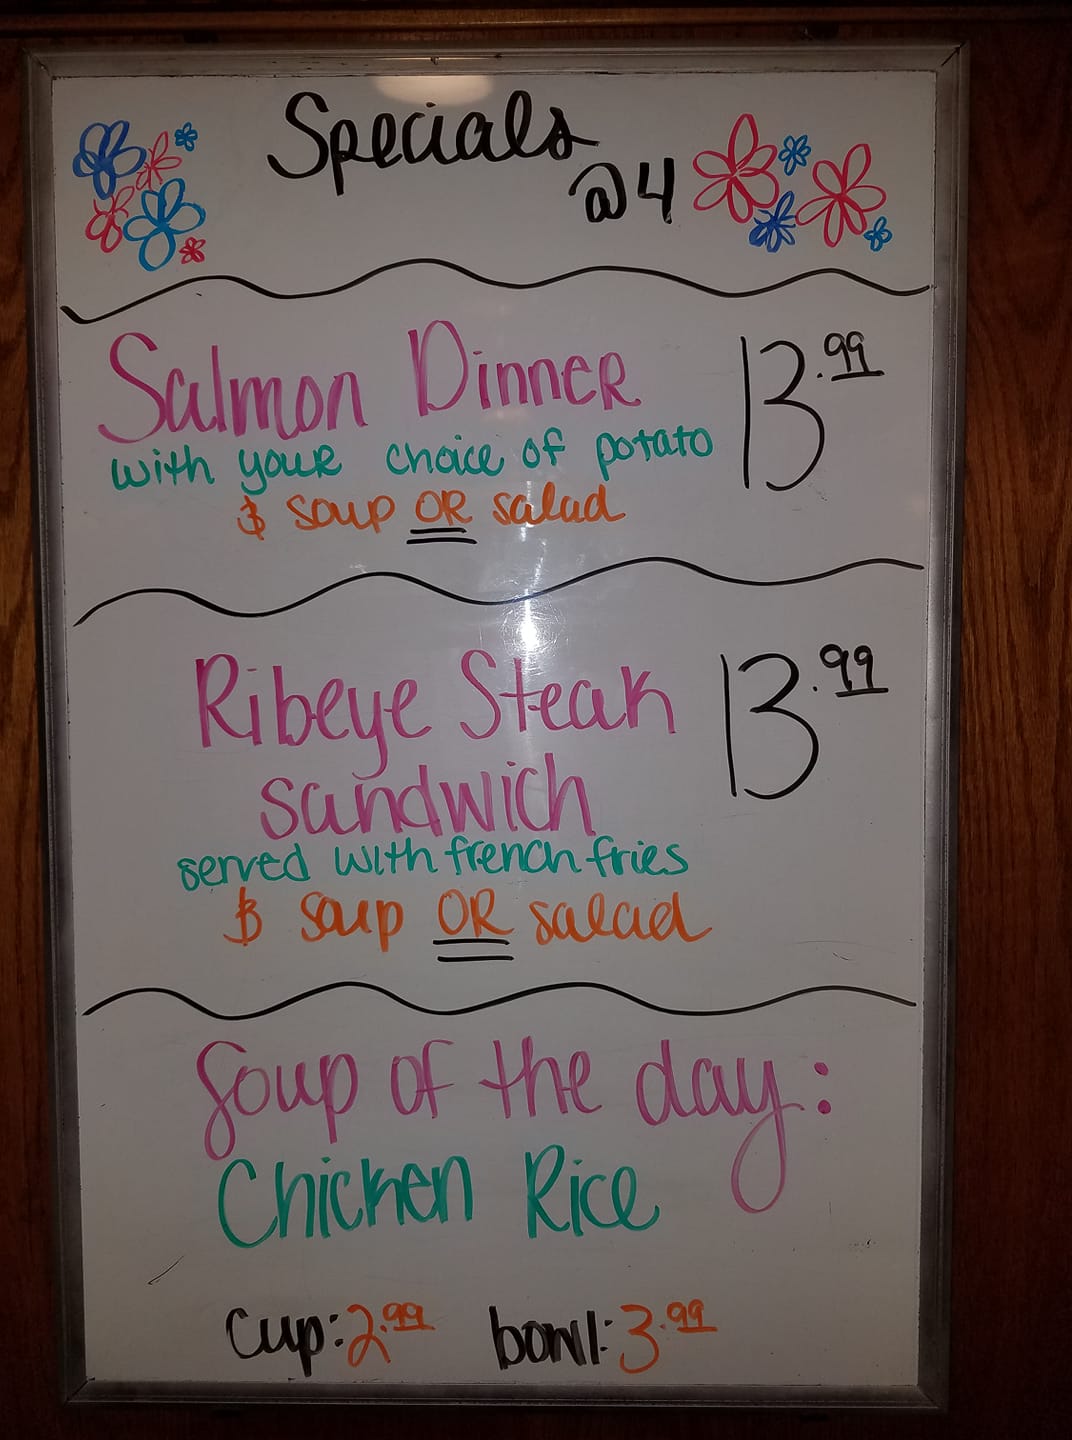 Specials
@4
Salmon Dinner 13.99
with your choice of potato
& soup OR salad
Ribeye Steak 13.99
sandwich
served with french fries
& soup OR salad
Soup of the day:
Chicken Rice
cup: 2.99 bowl: 3.99